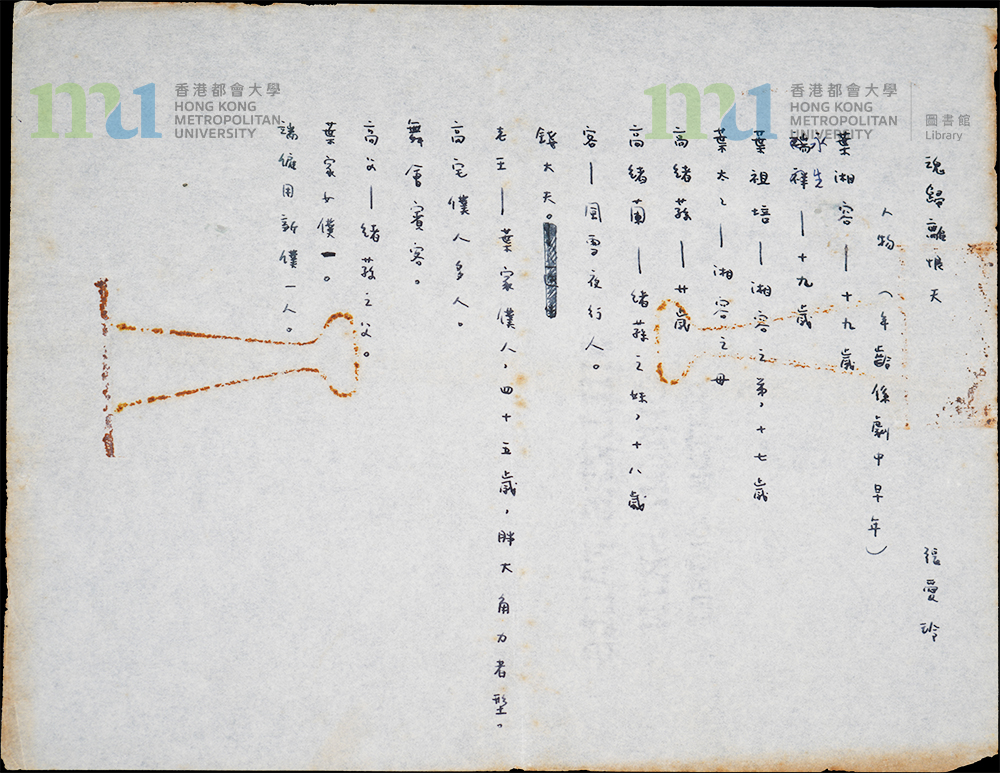 魂歸離恨天 張愛玲
人物 (年齡係劇中早年)
葉湘容—十九歲
瑞祥—十九歲
永生
葉祖培—湘容之弟,十七歲
葉太太—湘容之母
高緒蓀—廿歲
高緒蘭—緒蓀之妹,十八歲
客—風雪夜行人。
錢大夫。
老王—葉家僕人,四十五歲,胖大角力者型。
高宅僕人多人。
舞會賓客。
高父—緒蓀之父。
葉家女僕一。
瑞僱用新僕一人。
mu 香港都會大學
HONG KONG
METROPOLITAN
UNIVERSITY
mu 香港都會大學
HONG KONG
METROPOLITAN
UNIVERSITY
圖書館
Library